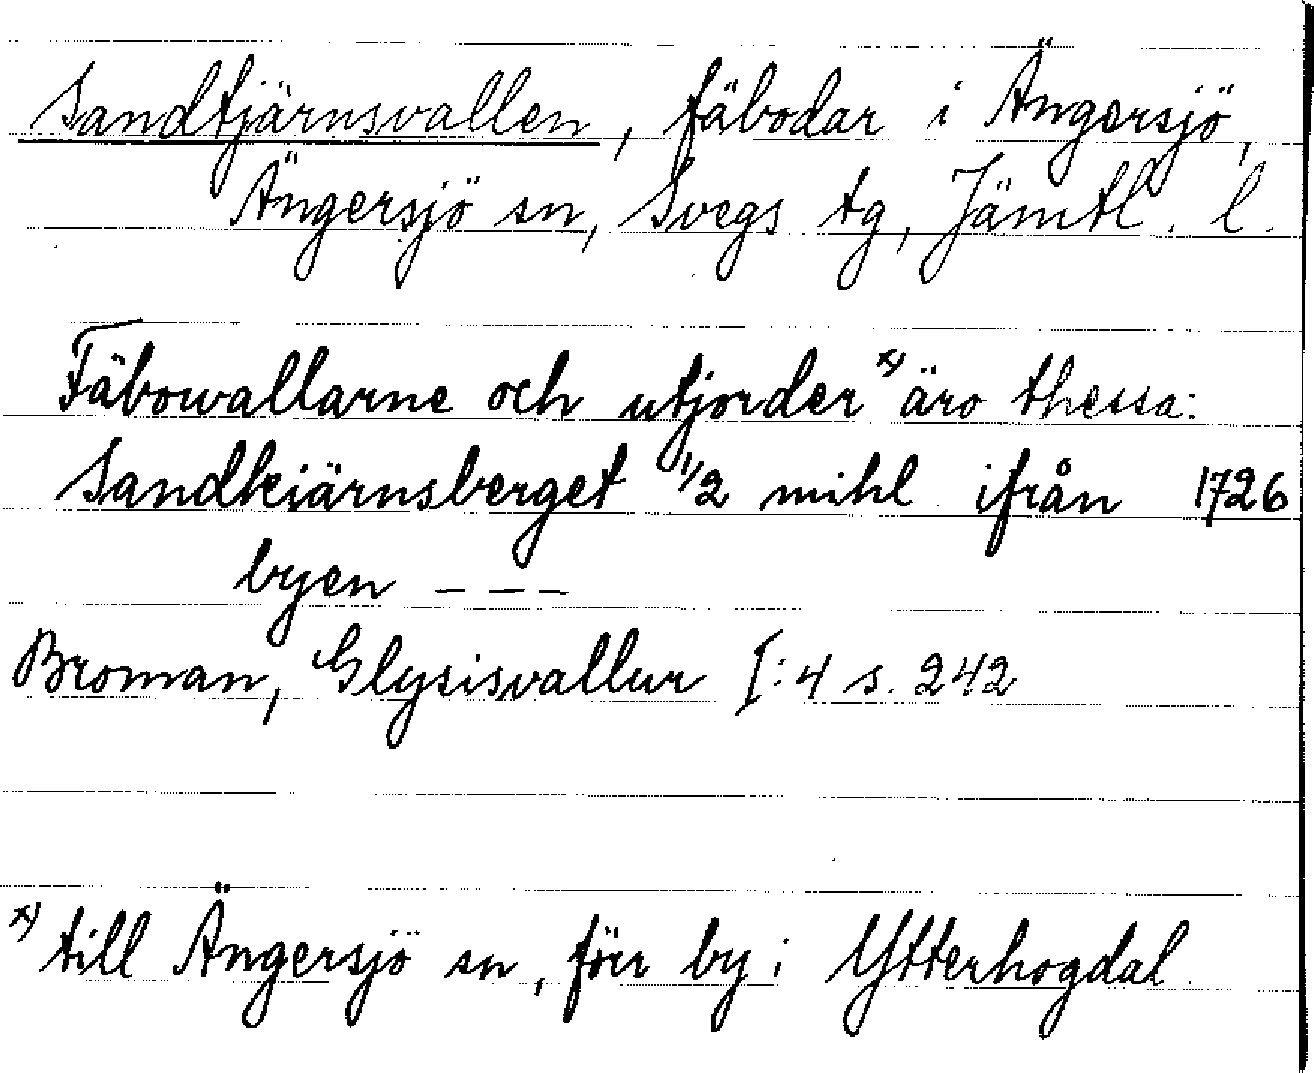 Sandtjärnsvallen, fäbodar i Ängersjö,
Ängersjö sn, Svegs tg, Jämtl. l.
Fäbowallarne och utjorder x) äro thessa:
Sandkiärnsberget 1/2 mihl ifrån 1726
byen ---
Broman, Glysisvallur I:4 s. 242
x) till Ängersjö sn, förr by i Ytterhogdal.